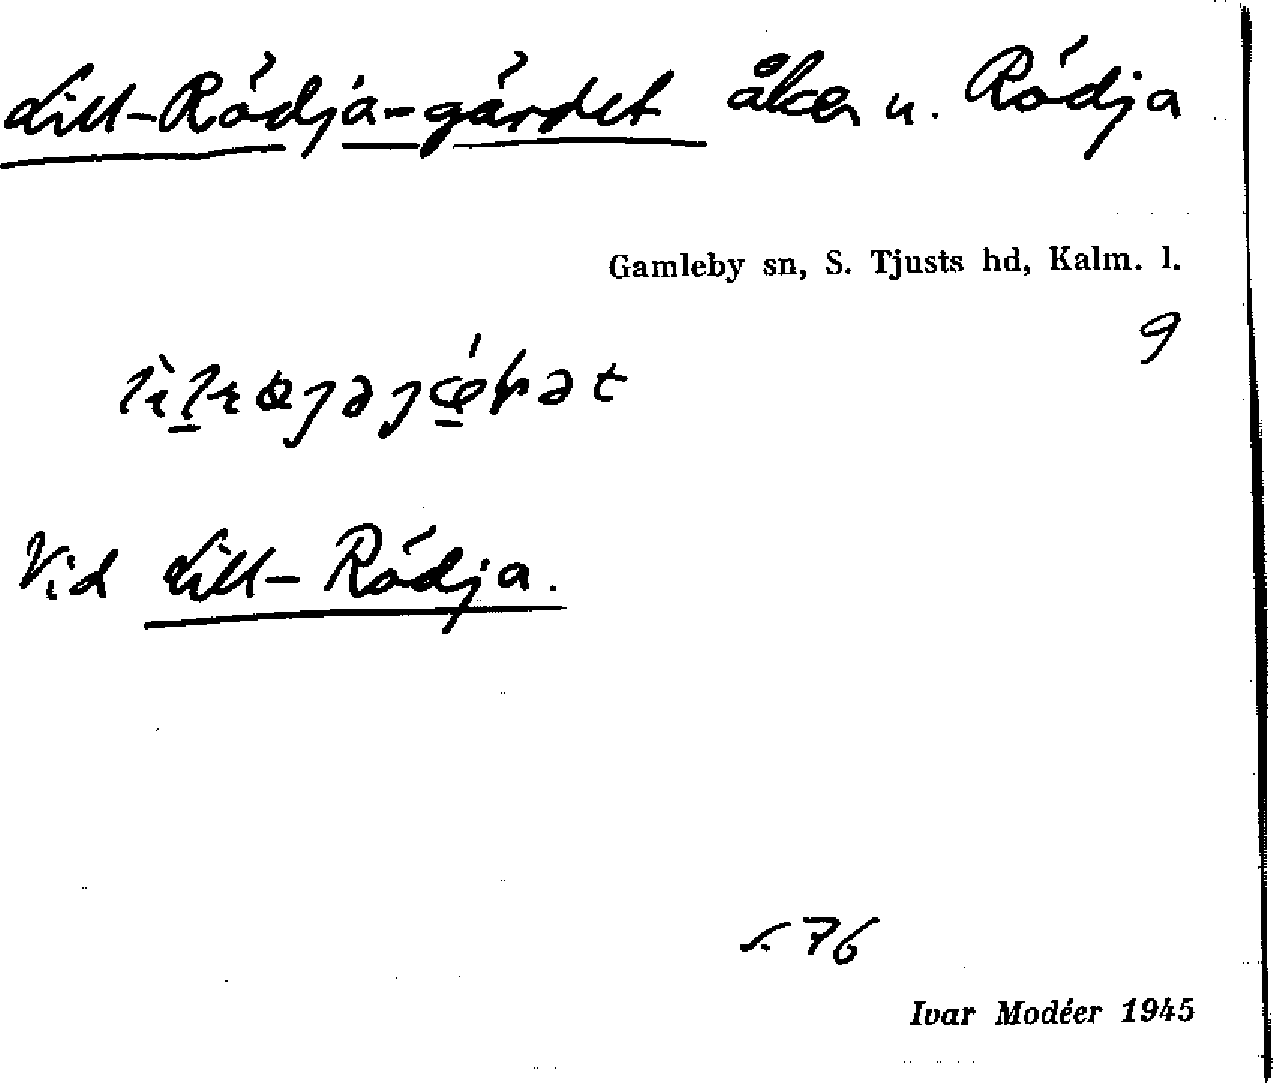 Lill-Rödja-gärdet åker u. Rödja
Gamleby sn, S. Tjusts hd, Kalm. l.
9
Vid Lill-Rödja.
s. 76
Ivar Modéer 1945